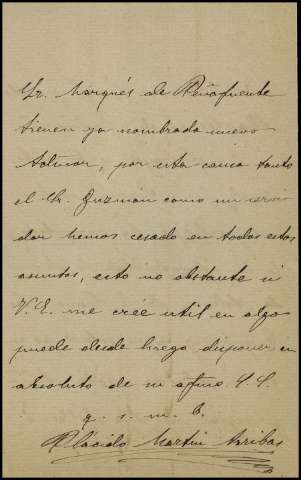 Sr. Marqués de Peñafuente
tienen ya nombrado nuevo
, por esta causa tanto
el Sr. Guzmán como un servi
dor hemos cesado en todos estos
asuntos, esto no obstante si
V. E. me crée util en algo
puede desde luego disponer en
absoluto de su afmo S. S.
q. s. m. b.
Plácido Martin Arribas